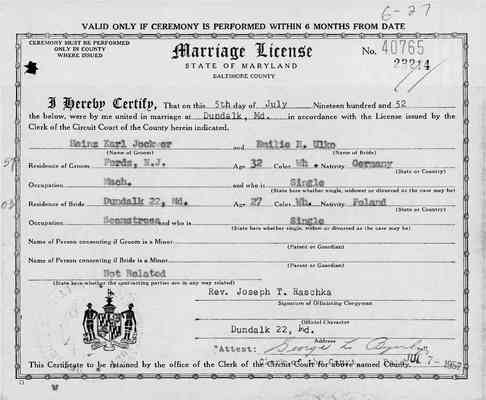 6-27
VALID ONLY IF CEREMONY IS PERFORMED WITHIN 6 MONTHS FROM DATE
CEREMONY MUST BE PERFORMED
ONLY IN COUNTY
WHERE ISSUED
Marriage License
STATE OF MARYLAND
BALTIMORE COUNTY
No. 40765
23214
I Hereby Certify, That on this 5th day of July Nineteen hundred and 52
the below, were by me united in marriage at Dundalk, Md. in accordance with the License issued by the
Clerk of the Circuit Court of the County herein indicated.
Heinz Karl and Emilie E. Ulko
(Name of Groom) (Name of Bride)
Residence of Groom Fords, N.J. Age 32 Color Wh. Nativity Germany
(State or Country)
Occupation Mach. and who is Single
(State here whether single, widower or divorced as the case may be)
Residence of Bride Dundalk 22, Md. Age 27 Color Wh. Nativity Poland
(State or Country)
Occupation Seamstress and who is Single
(State here whether single, widow or divorced as the case may be)
Name of Person consenting if Groom is a Minor
(Parent or Guardian)
Name of Person consenting if Bride is a Minor
(Parent or Guardian)
Not Related
(State here whether the contracting parties are in any way related)
Rev. Joseph T. Raschka
Signature of Officiating Clergyman
Official Character
Dundalk 22, Md.
Address
"Attest: George L. Byerly"
Clerk of the Court JUL 7- 1952
This Certificate to be retained by the office of the Clerk of the Circuit Court for above named County.